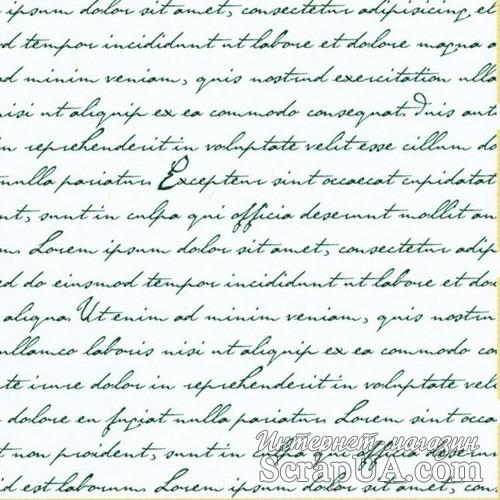 ipsum dolor sit amet, consectetur adipisicing el
d tempor incididunt ut labore et dolore magna a
ad minim veniam, quis nostrud exercitation ulla
nisi ut aliquip ex ea commodo consequat. Duis aut
in reprehenderit in voluptate velit esse cillum do
nulla pariatur. Excepteur sint occaecat cupidatat
nt, sunt in culpa qui officia deserunt mollit an
m. Lorem ipsum dolor sit amet, consectetur adipi
ed do eiusmod tempor incididunt ut labore et dol
aliqua. Ut enim ad minim veniam, quis nostru
ullamco laboris nisi ut aliquip ex ea commodo co
te irure dolor in reprehenderit in voluptate veli
dolore eu fugiat nulla pariatur. Lorem sint occa
t non proident, sunt in culpa qui officia deserun
id est laborum. Lorem ipsum dolor sit amet, con
Интернет-магазин
ScrapUA.com